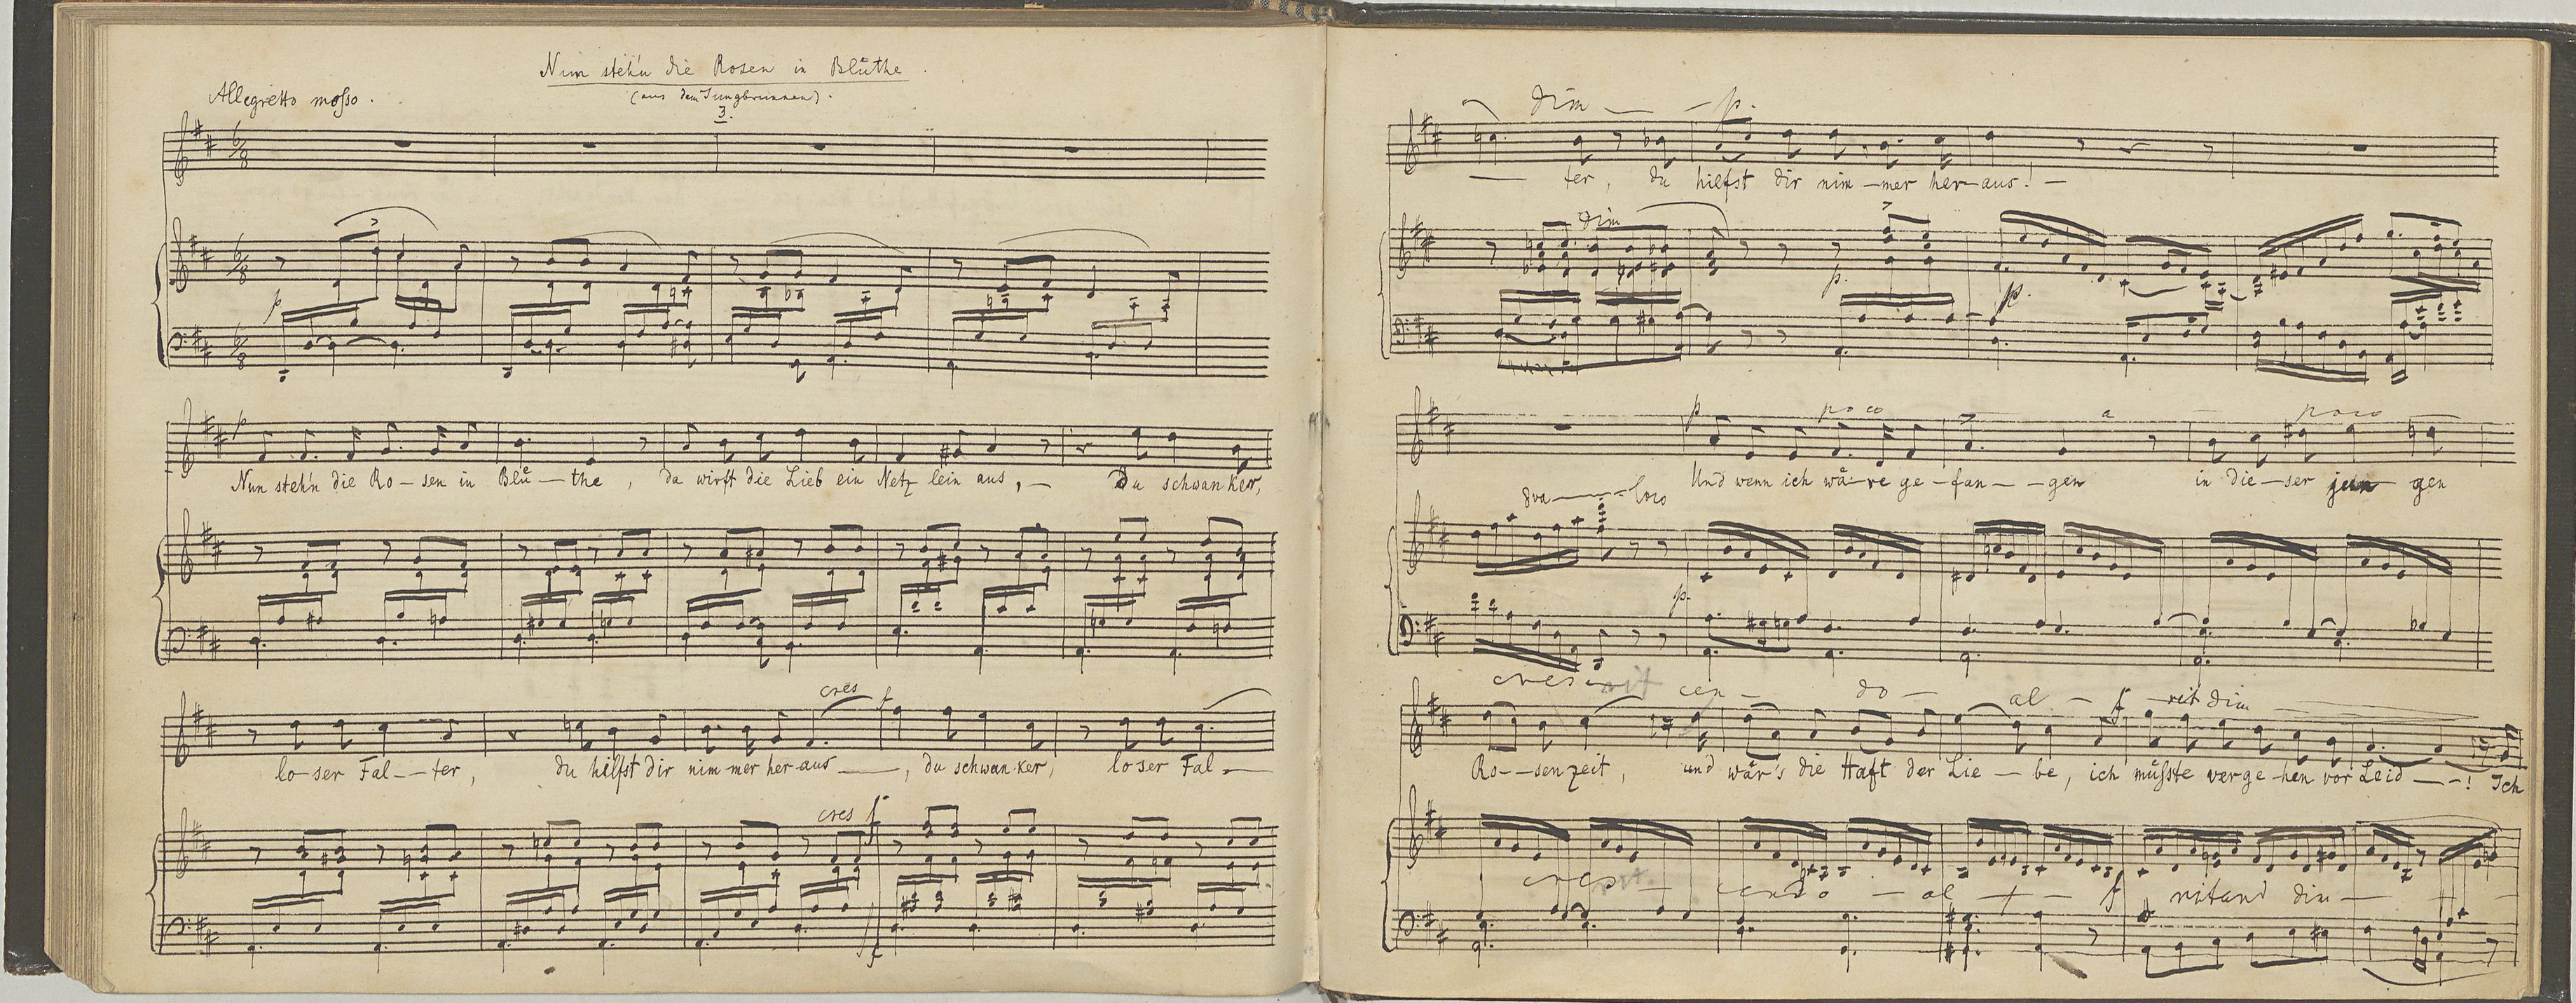 Nun steh'n die Rosen in Blüthe.
(aus dem Jungbrunnen).
Allegretto mosso.
3.
6/8
6/8
p
6/8
p
Nun steh'n die Ro-sen in Blü-the, da wirft die Lieb ein Netz lein aus, - Du schwanker,
cres f
lo-ser Fal--ter, du hilfst dir nim-mer her-aus-, du schwan-ker, loser Fal-
cres f
f
dim - - p.
- ter, du hilfst dir nim-mer her-aus! -
dim
p.
p.
p poco a poco
Und wenn ich wä-re ge-fan--gen in die-ser jun-gen
8va --- loco
p.
cres - cen - do - al - f - rit dim
Ro--senzeit, und wär's die Haft der Lie-be, ich müsste verge-hen vor Leid--! Ich
cres - cendo - al - f ritard dim -